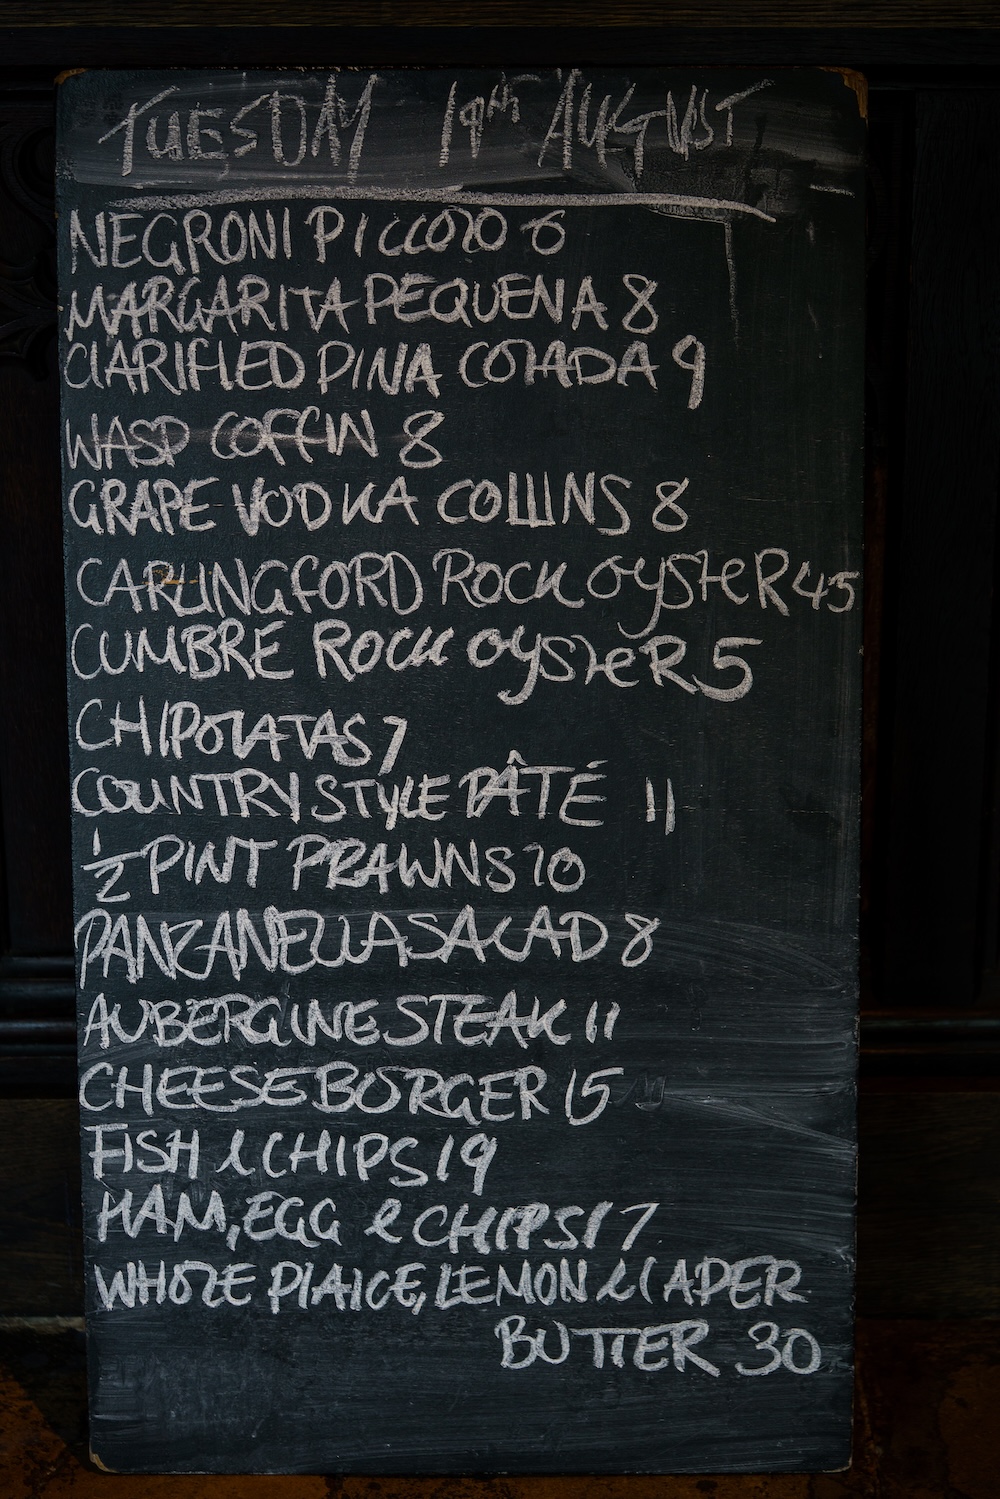 TUESDAY 19TH AUGUST
NEGRONI PICCOLO 6
MARGARITA PEQUENA 8
CLARIFIED PINA COLADA 9
WASP COFFIN 8
GRAPE VODKA COLLINS 8
CARLINGFORD ROCK OYSTER 45
CUMBRE ROCK OYSTER 5
CHIPOLATAS 7
COUNTRY STYLE PÂTÉ 11
1/2 PINT PRAWNS 10
PANZANELLA SALAD 8
AUBERGINE STEAK 11
CHEESEBURGER 15
FISH & CHIPS 19
HAM, EGG & CHIPS 17
WHOLE PLAICE, LEMON & CAPER
BUTTER 30